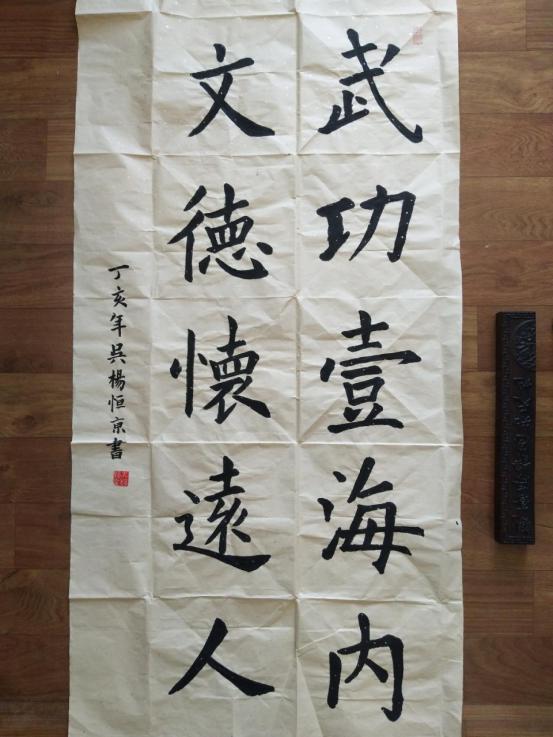 武功壹海内
文德懷遠人
丁亥年吳楊恒京書